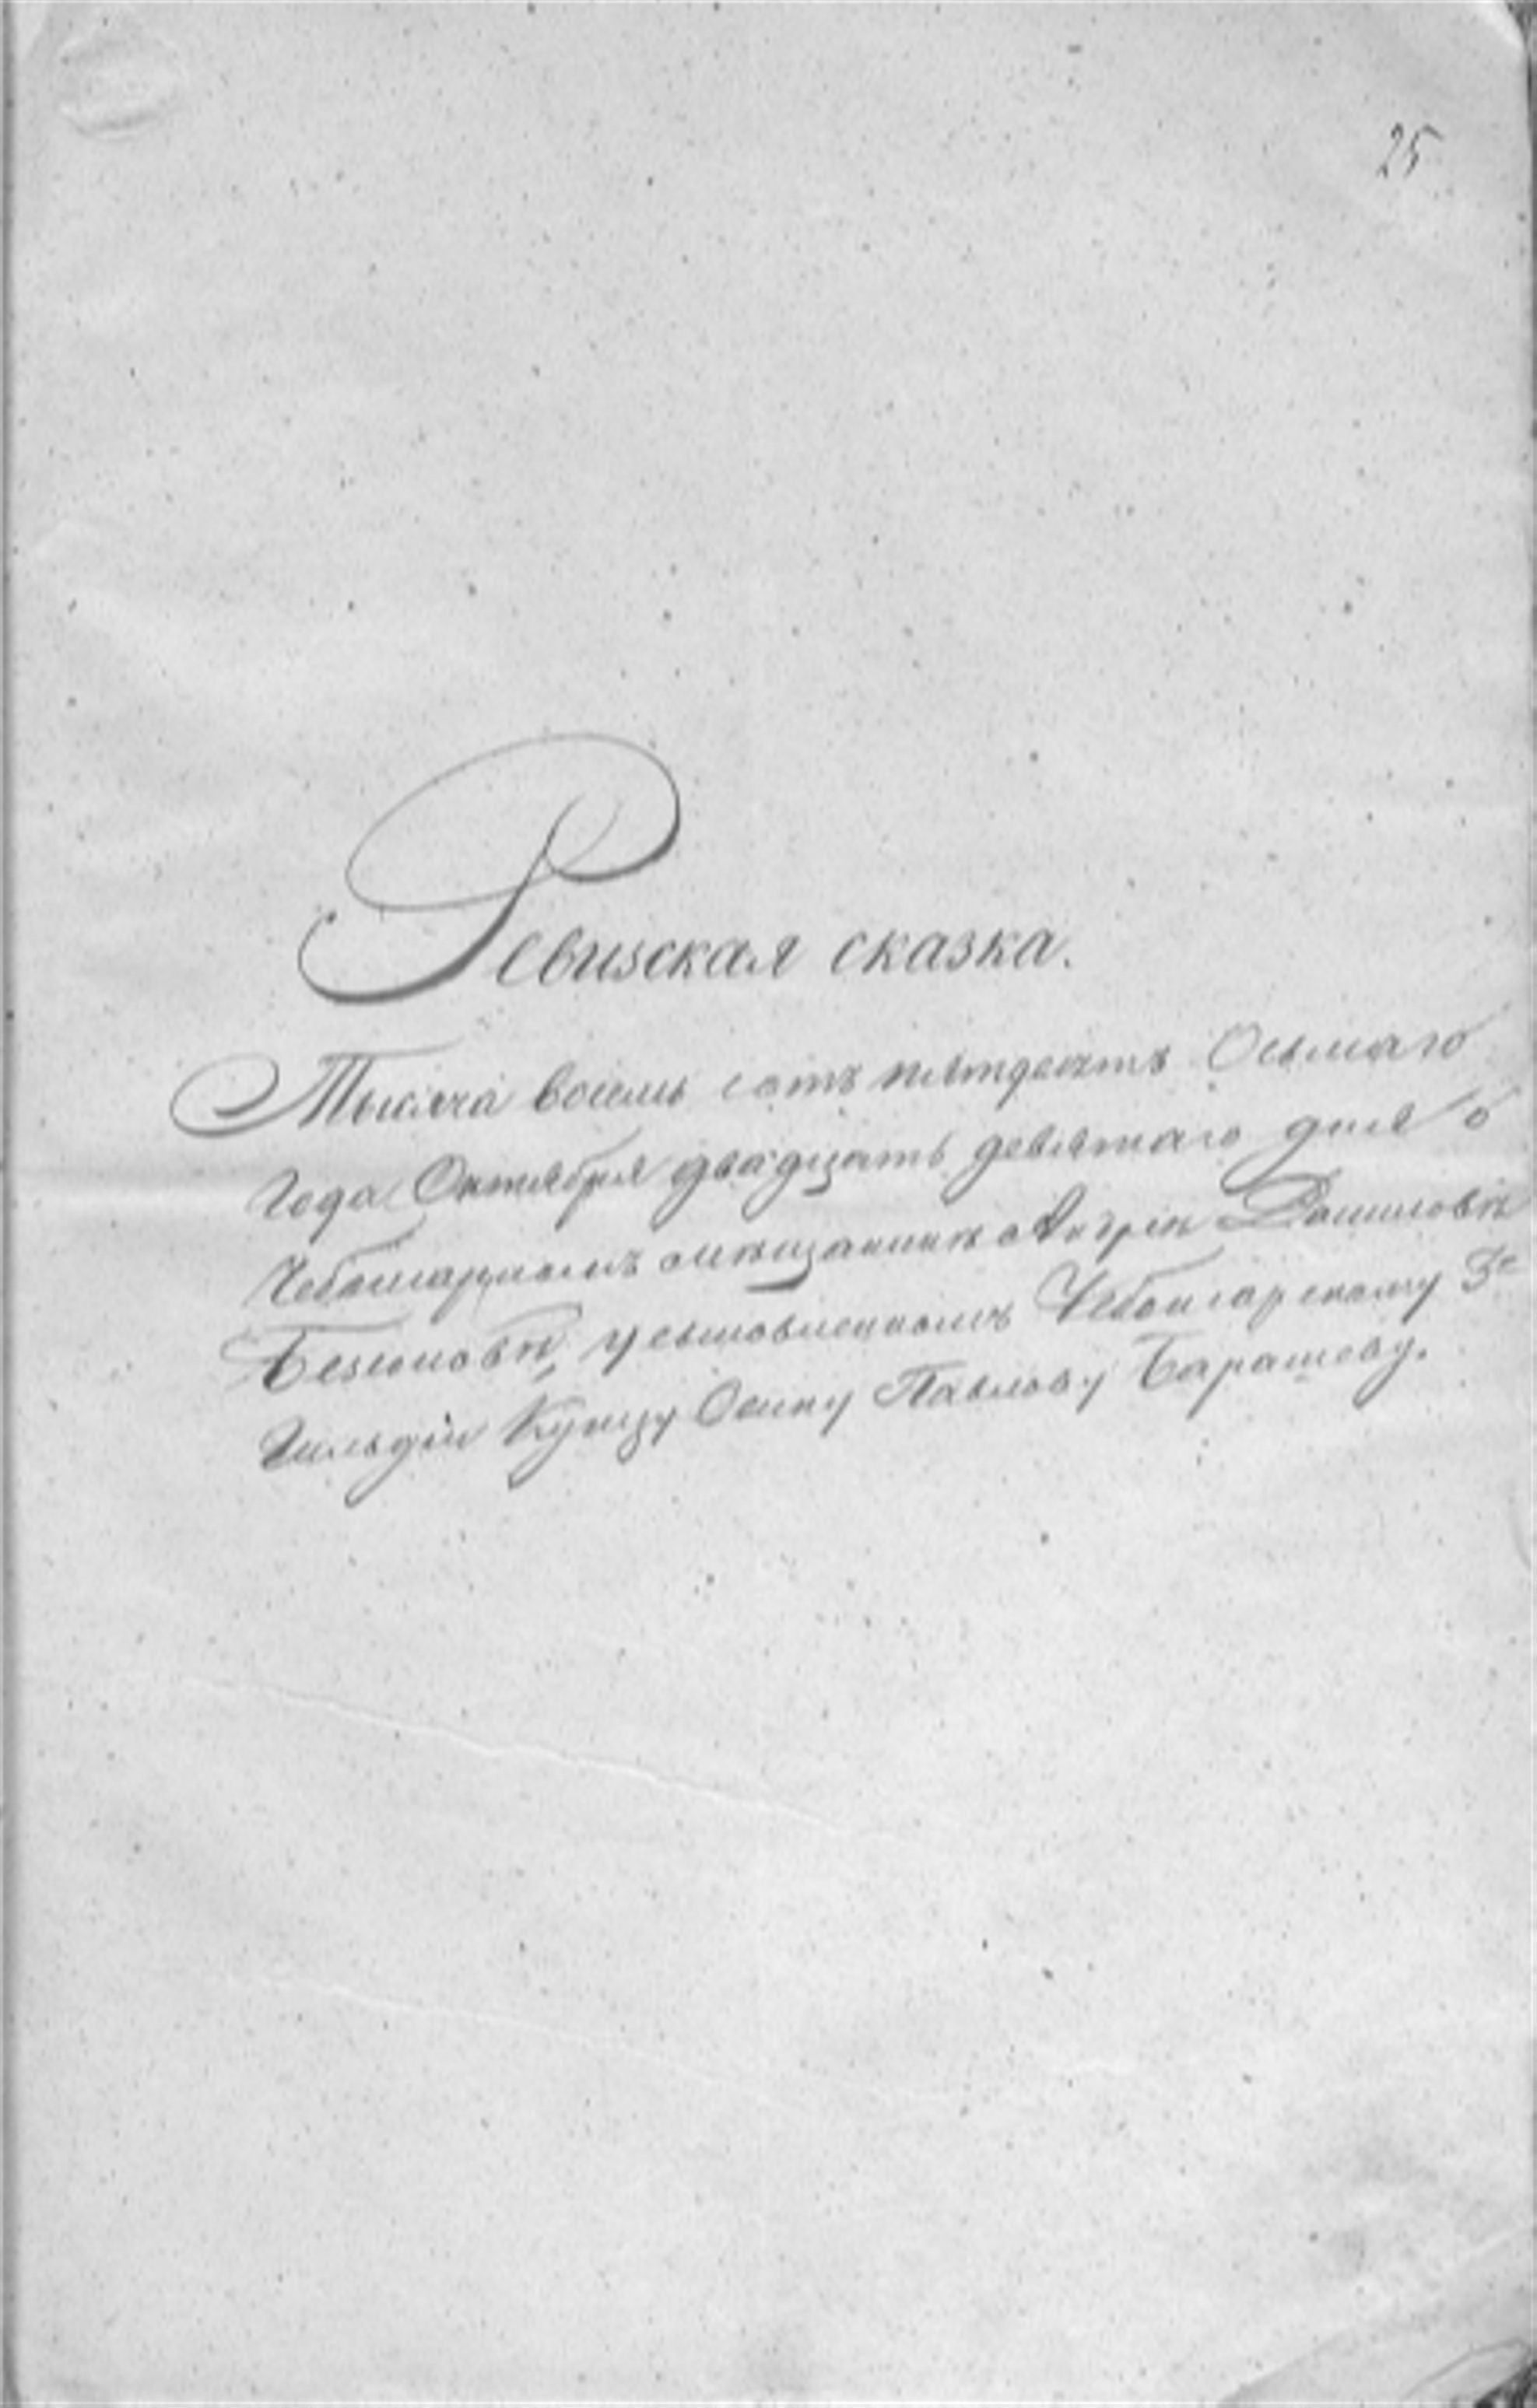 25
Ревизская сказка.
Тысяча восемь сотъ пятдесятъ Осьмаго
Года Октября двадцать девятаго дня о
Чебоксарскомъ мѣщанинѣ Андрѣѣ Даниловѣ
усыновленномъ Чебоксарскому 3й
Гильдіи Купцу Осипу Павлову Барашеву.